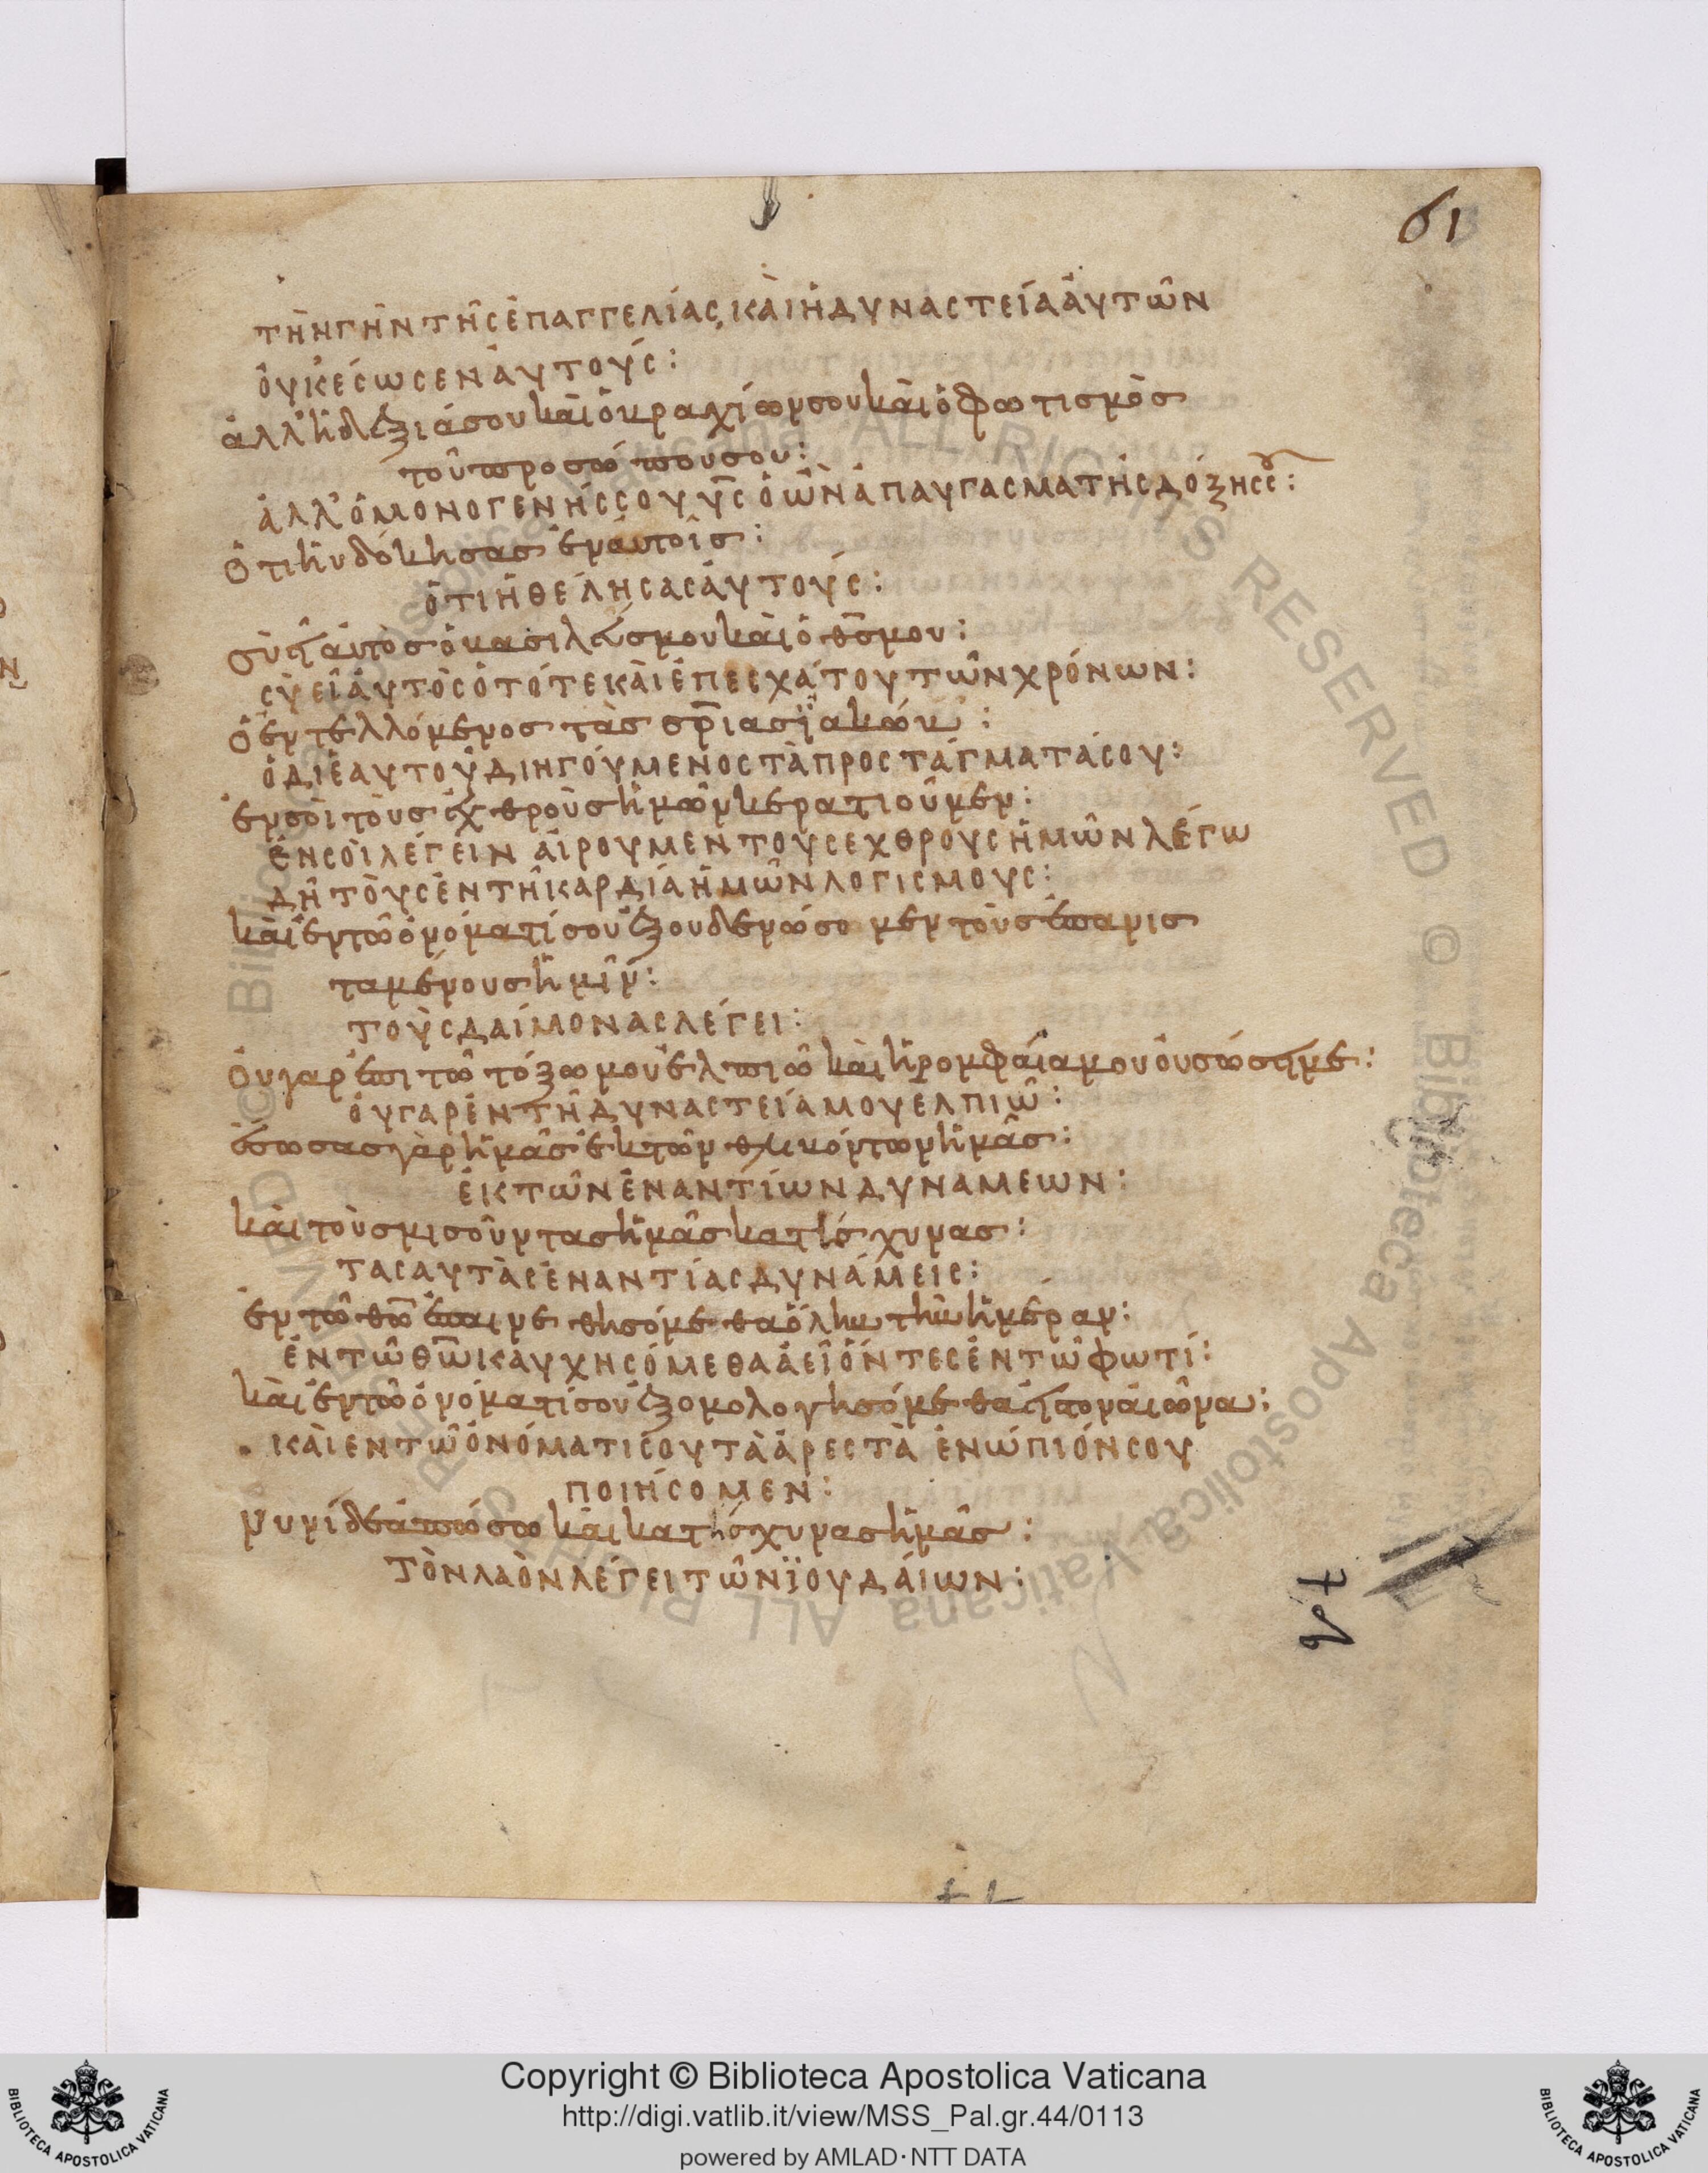 61
τὴν γῆν τῆς ἐπαγγελίας, καὶ ἡ δυναστεία ἀυτῶν
ὀυκ ἔσωσεν ἀυτούς:
ἀλλ' ἡ δεξιά σου καὶ ὁ βραχίων σου καὶ ὁ φωτισμὸσ
τοῦ προσώπου σου:
ἀλλ' ὁ μονογενής σου υ̅ς̅ ὁ ὢν ἀπαύγασμα τῆς δόξης σου:
ὅτι ηὐδόκησας ἐν ἀυτοῖς:
ὅτι ἠθέλησας ἀυτούς:
σὺ εἶ ἀυτὸς ὁ βασιλεύς μου καὶ ὁ θ̅ς̅ μου:
σὺ εἶ ἀυτὸς ὁ τότε καὶ ἐπ' ἐσχάτου τῶν χρόνων:
ὁ ἐντελλόμενος τὰς σ̅ρ̅ι̅ας ϊακώβ:
ὁ δι' ἑαυτοῦ διηγούμενος τὰ προστάγματά σου:
ἐν σοὶ τοὺς ἐχθροὺς ἡμῶν κερατιοῦμεν:
ἐν σοὶ λέγειν ἀίρουμεν τοὺς ἐχθροὺς ἡμῶν λέγω
δὴ τοὺς ἐν τῆ καρδία ἡμῶν λογισμους:
καὶ ἐν τῶ ὀνόματί σου ἐξουδενώσομεν τοὺς ἐπανισ
ταμένους ἡμῖν:
τοὺς δαίμονας λέγει:
ὀυ γαρ ἐπι τῶ τόξω μου ἐλπιῶ καὶ ἡ ρομφάια μου ὀυ σώσει με:
ὀυ γαρ ἐν τῆ δυναστεία μου ἐλπιῶ:
ἔσωσας γὰρ ἡμᾶς ἐκ τῶν θλιβόντων ἡμᾶς:
ἐκ τῶν ἐναντίων δυναμεων:
καὶ τοὺς μισοῦντας ἡμᾶς κατήσχυνας:
τας αυτὰς ἐναντίας δυνάμεις:
ἐν τῶ θ̅ω̅ ἐπαινεθησόμεθα ὅλην τὴν ἡμέραν:
ἐν τῶ θ̅ω̅ι καυχησόμεθα ἀεὶ ὄντες ἐν τῶ φωτί:
καὶ ἐν τῶ ὀνόματί σου ἐξομολογησόμεθα εἰς τον ἀιῶνα:
καὶ ἐν τῶ ὀνόματί σου τὰ ἀρεστὰ ἐνώπιόν σου
ποιήσομεν:
νυνὶ δὲ ἀπώσω καὶ κατήσχυνας ἡμᾶς:
τὸν λαὸν λέγει τῶν ϊουδάιων:
Copyright © Biblioteca Apostolica Vaticana
http://digi.vatlib.it/view/MSS_Pal.gr.44/0113
powered by AMLAD·NTT DATA
BIBLIOTECA APOSTOLICA VATICANA
BIBLIOTECA APOSTOLICA VATICANA